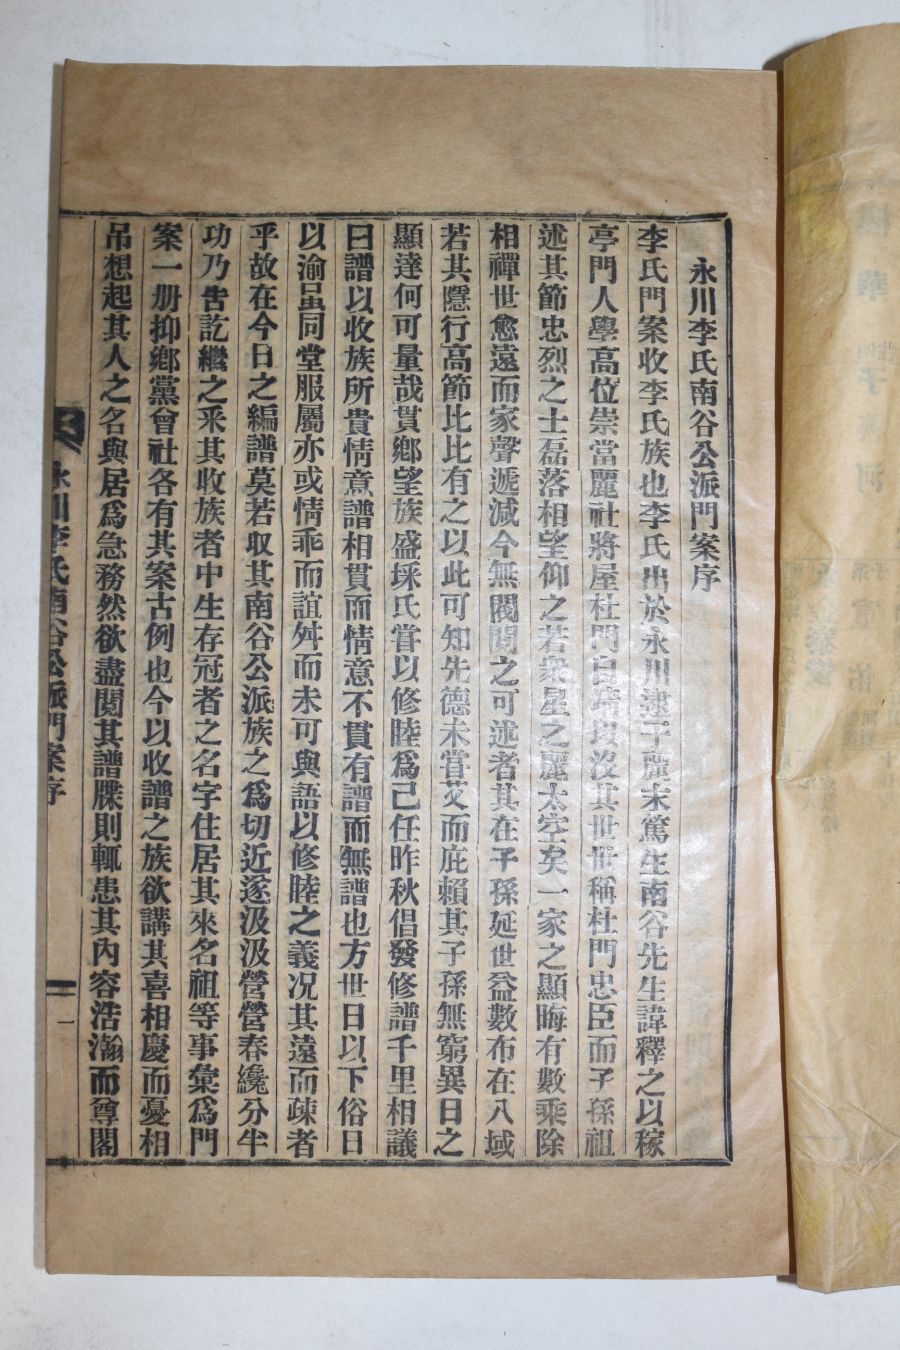 永川李氏南谷公派門案序
李氏門案收李氏族也李氏出於永川逮于麗末篤生南谷先生諱釋之以稼
亭門人學高位崇當麗社將屋杜門自靖以沒其世世稱杜門忠臣而子孫祖
述其節忠烈之士磊落相望仰之若衆星之麗太空矣一家之顯晦有數乘除
相禪世愈遠而家聲遞減今無閥閱之可述者其在子孫延世益數布在八域
若其隱行高節比比有之以此可知先德未嘗艾而庇賴其子孫無窮異日之
顯達何可量哉貫鄕望族盛琢氏嘗以修睦爲己任昨秋倡發修譜千里相議
曰譜以收族所貴情意譜相貫而情意不貫有譜而無譜也方世日以下俗日
以渝呂同堂服屬亦或情乖而誼舛而未可與語以修睦之義况其遠而疎者
乎故在今日之編譜莫若収其南谷公派族之爲切近遂汲汲營營春纔分半
功乃告訖繼之采其收族者中生存冠者之名字住居其來名祖等事彙爲門
案一册抑鄕黨會社各有其案古例也今以收譜之族欲講其喜相慶而憂相
吊想起其人之名與居爲急務然欲盡閱其譜牒則輒患其內容浩瀚而尊閣
永川李氏南谷公派門案序
一